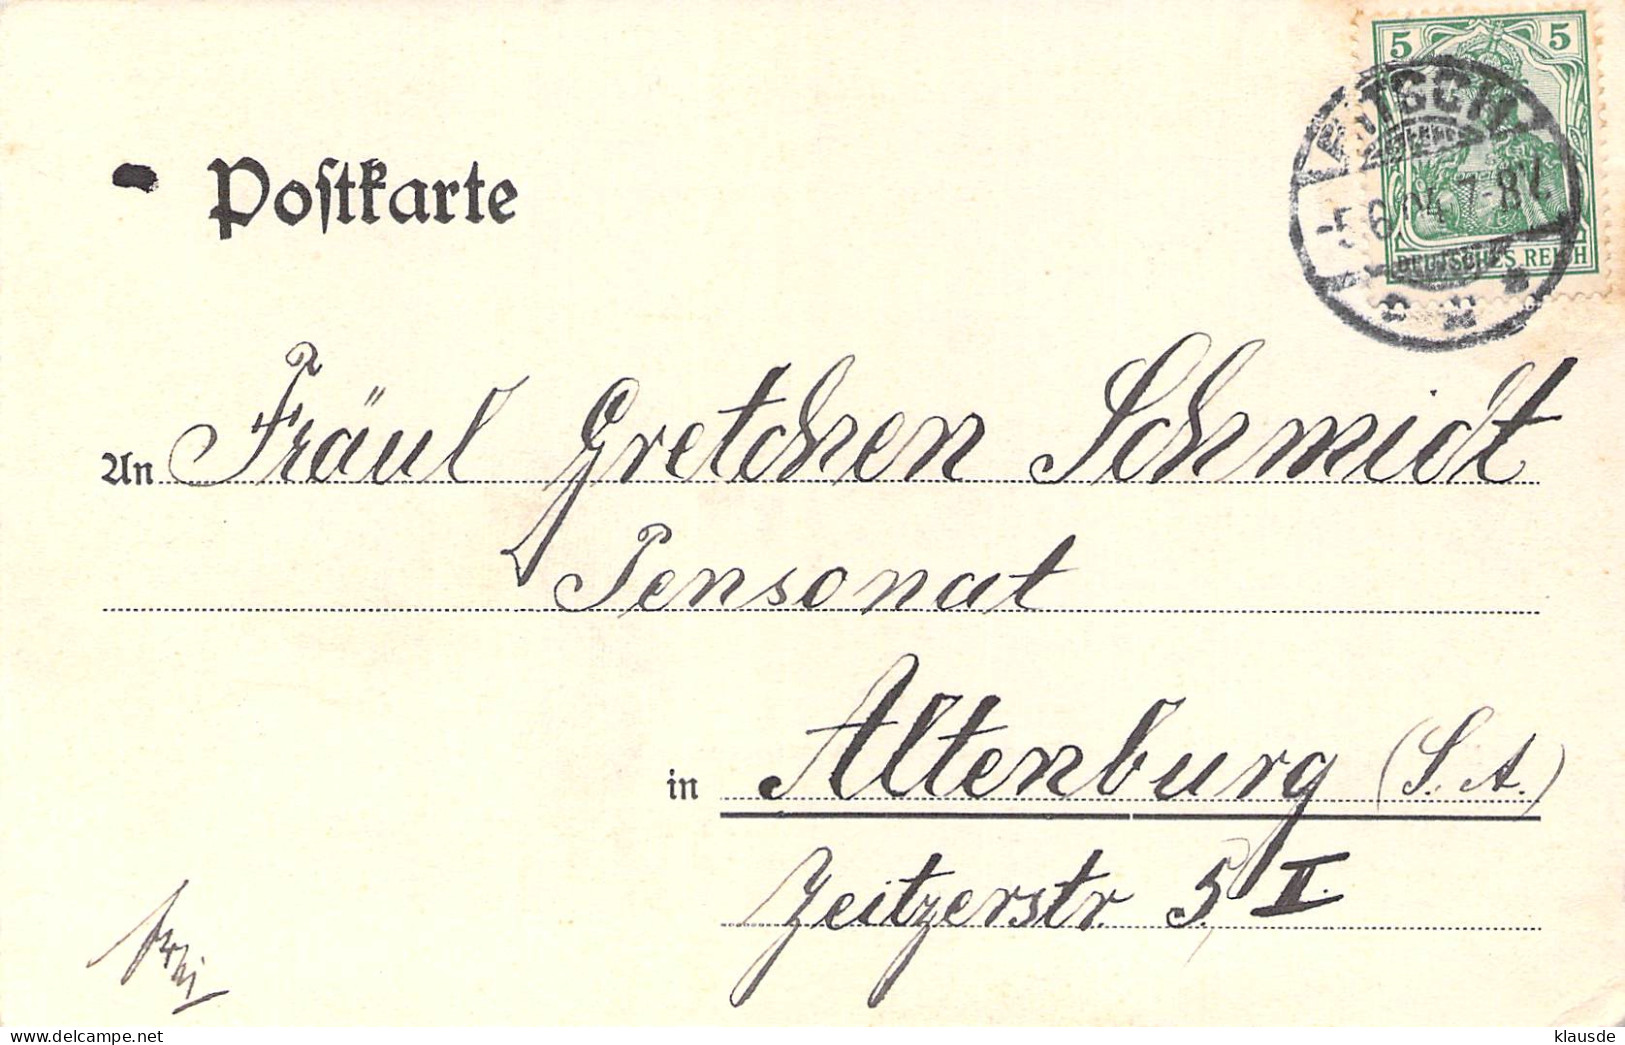 5 5
5.6.04.7-8V.
DEUTSCHES REICH
Postkarte
An Fräul Gretchen Schmidt
Pensonat
in Altenburg (S. A.)
Zeitzerstr. 5, I.
delcampe.net
klausde